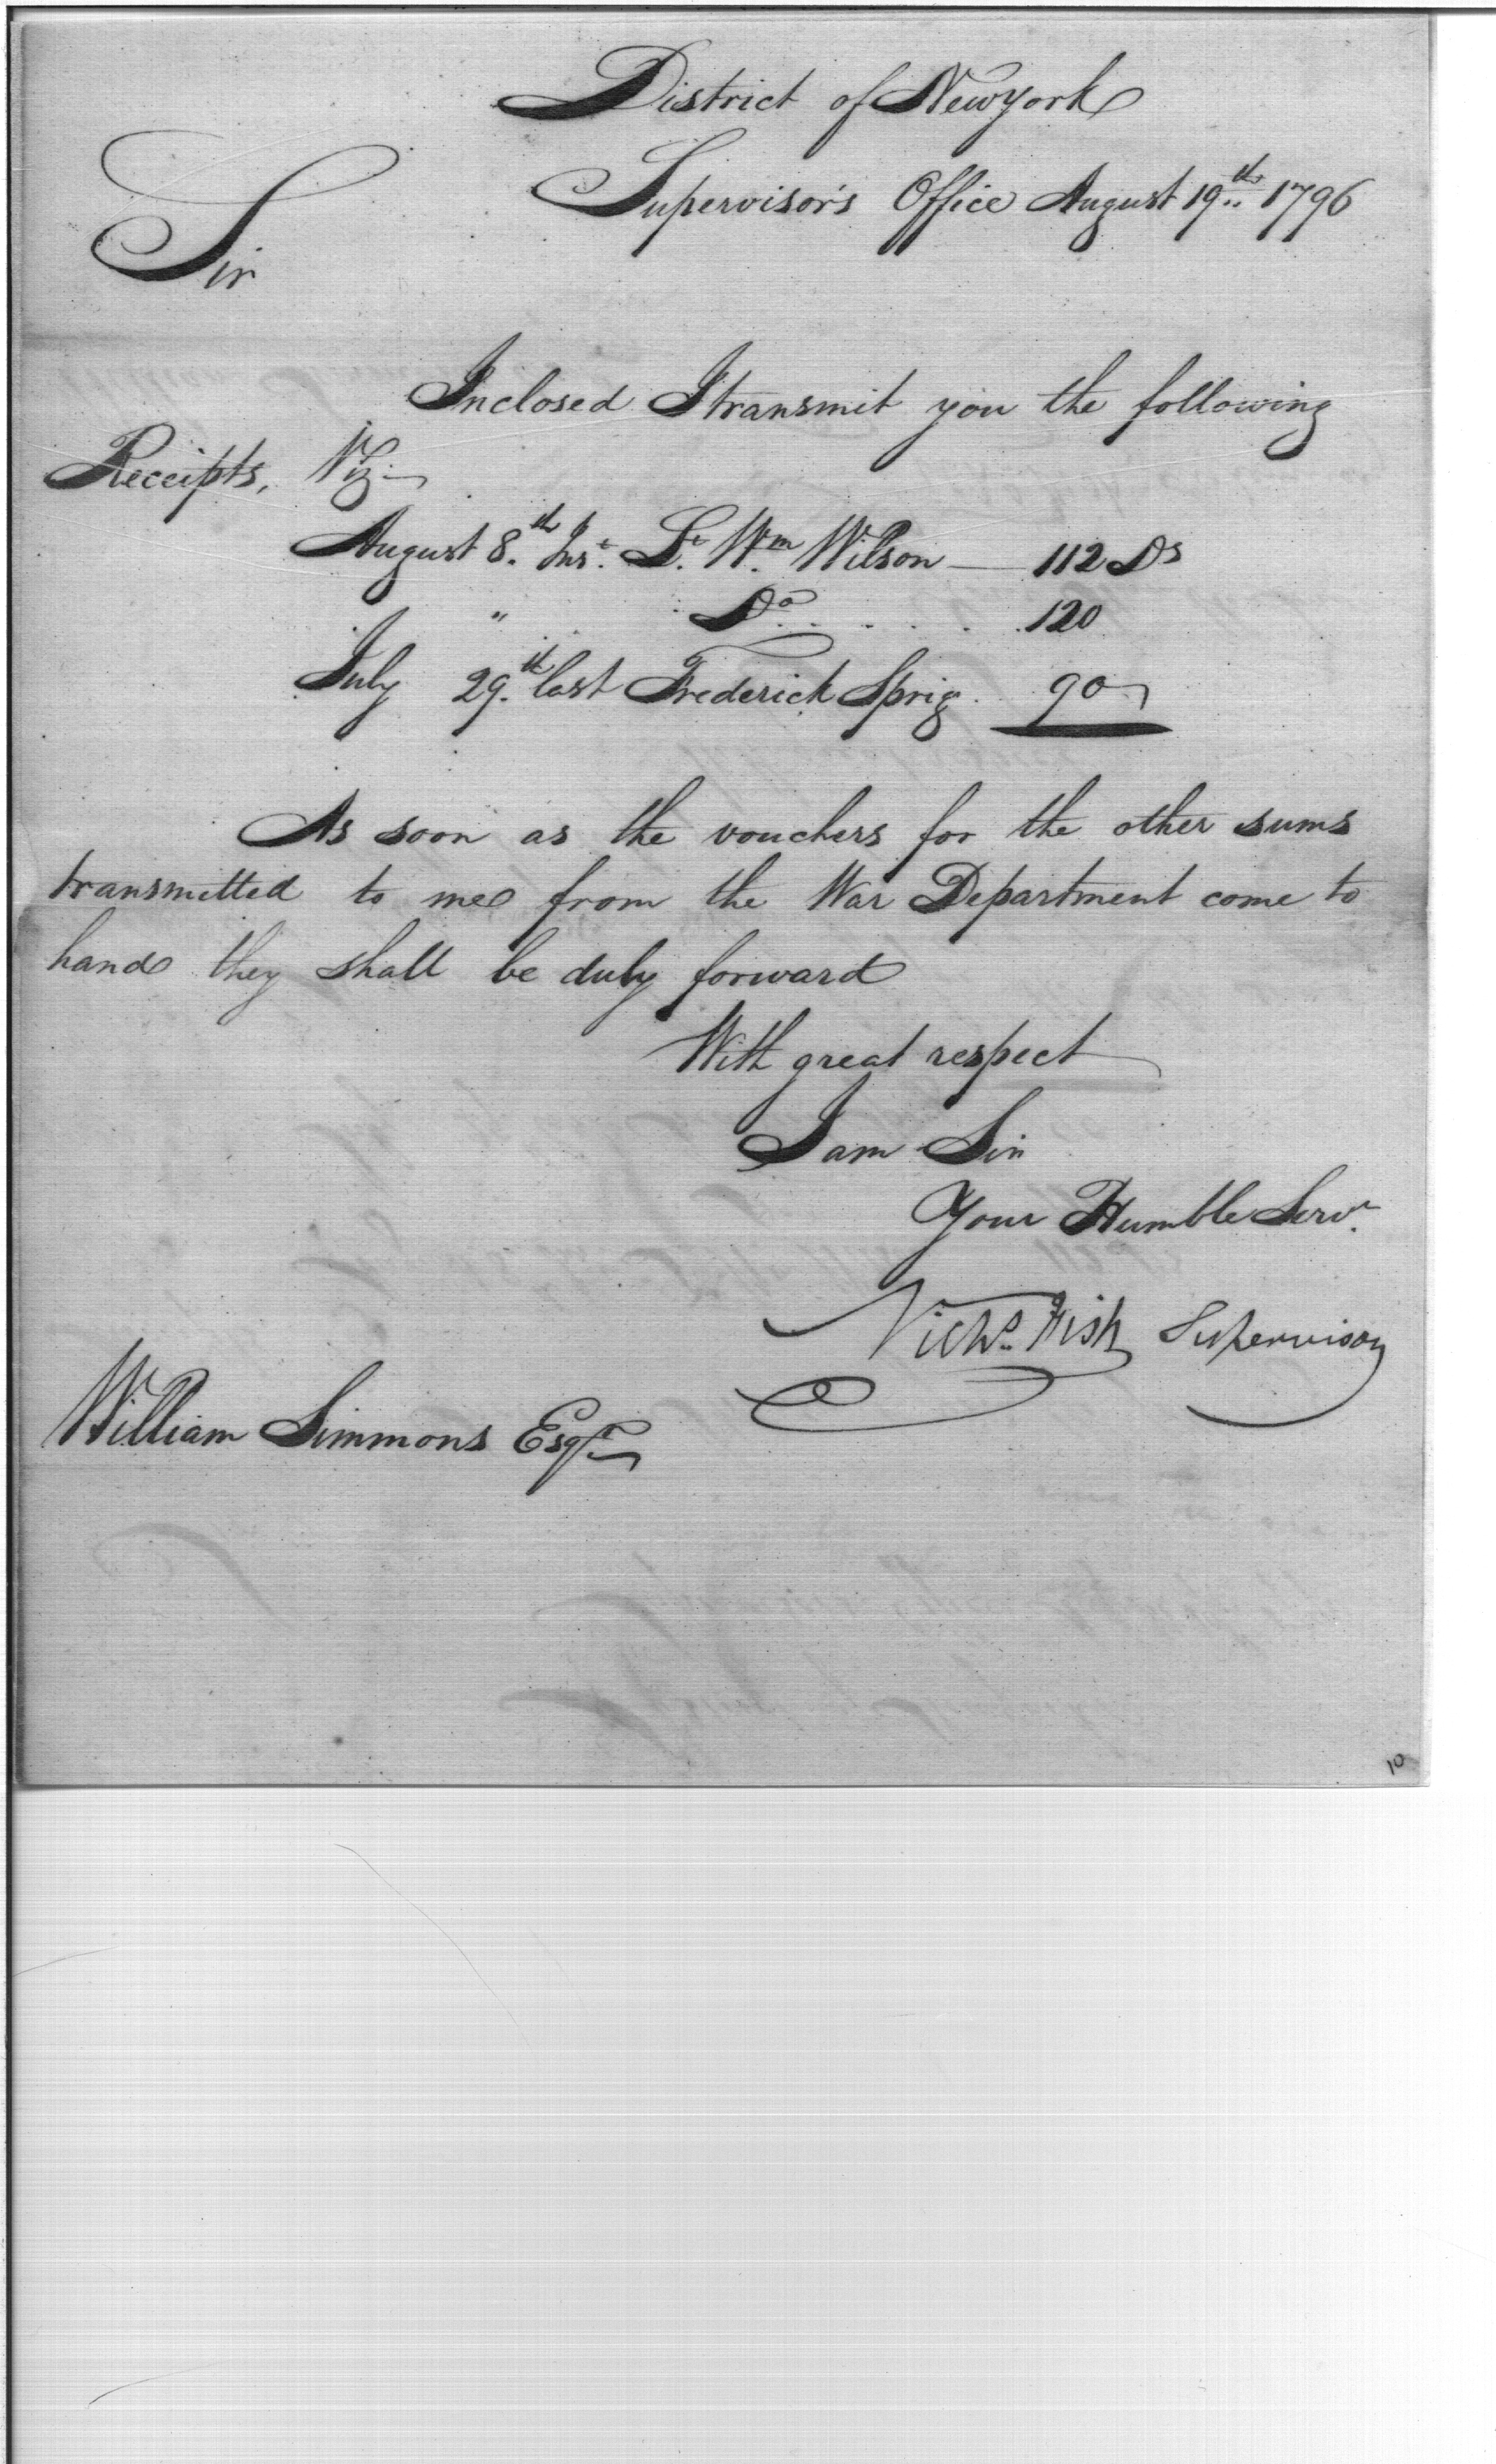 District of Newyork
Supervisor's Office August 19th 1796
Sir
Inclosed I transmit you the following
Receipts, Viz
August 8.th Inst. Lt. Wm. Wilson — 112 Ds
" Do . . . . . 120
July 29.th last Frederick Sprig. 90
As soon as the vouchers for the other sums
transmitted to me from the War Department come to
hand they shall be duly forward
With great respect
I am Sir
Your Humble Servr.
Nichs. Fish Supervisor
William Simmons Esqr.
10